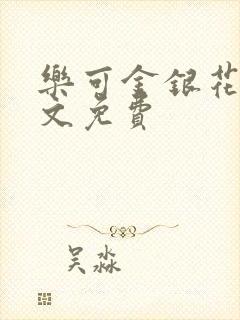 樂可金銀花
文免費
吴淼